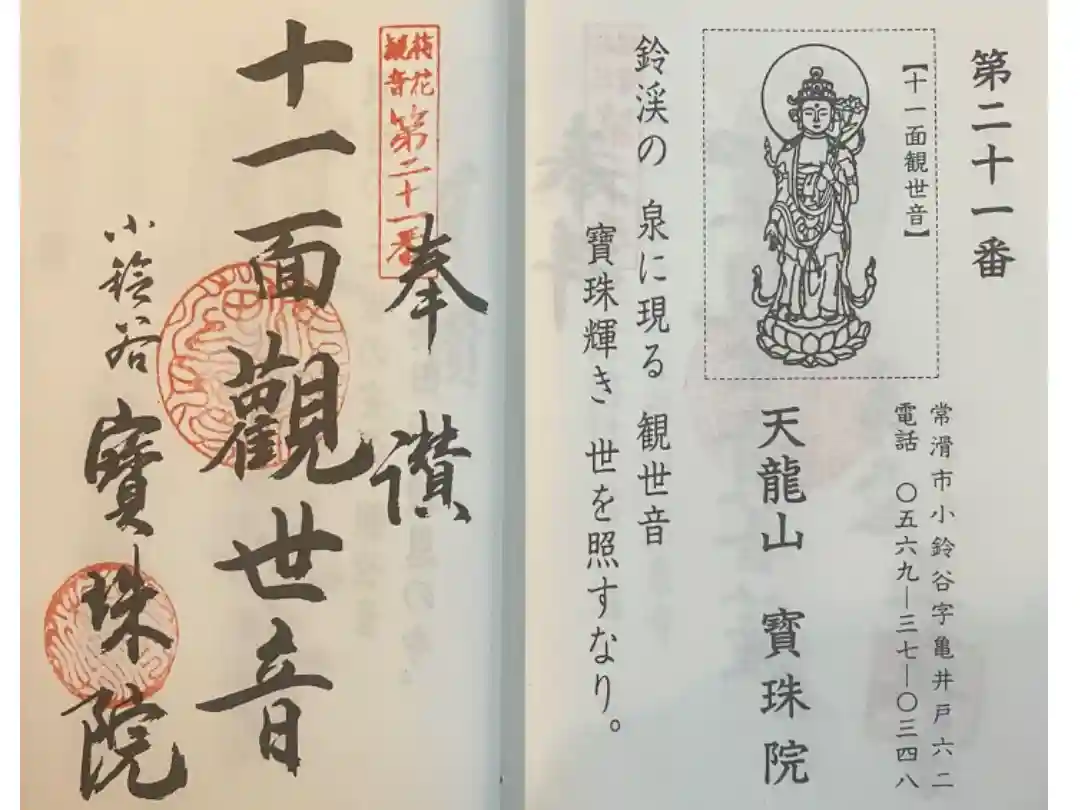 第二十一番
【十一面観世音】
常滑市小鈴谷字亀井戸六二
電話 〇五六九―三七―〇三四八
天龍山 寶珠院
鈴渓の 泉に現る 観世音
寶珠輝き 世を照すなり。
観音
第二十一番
奉讃
十一面觀世音
小鈴谷
寶珠院